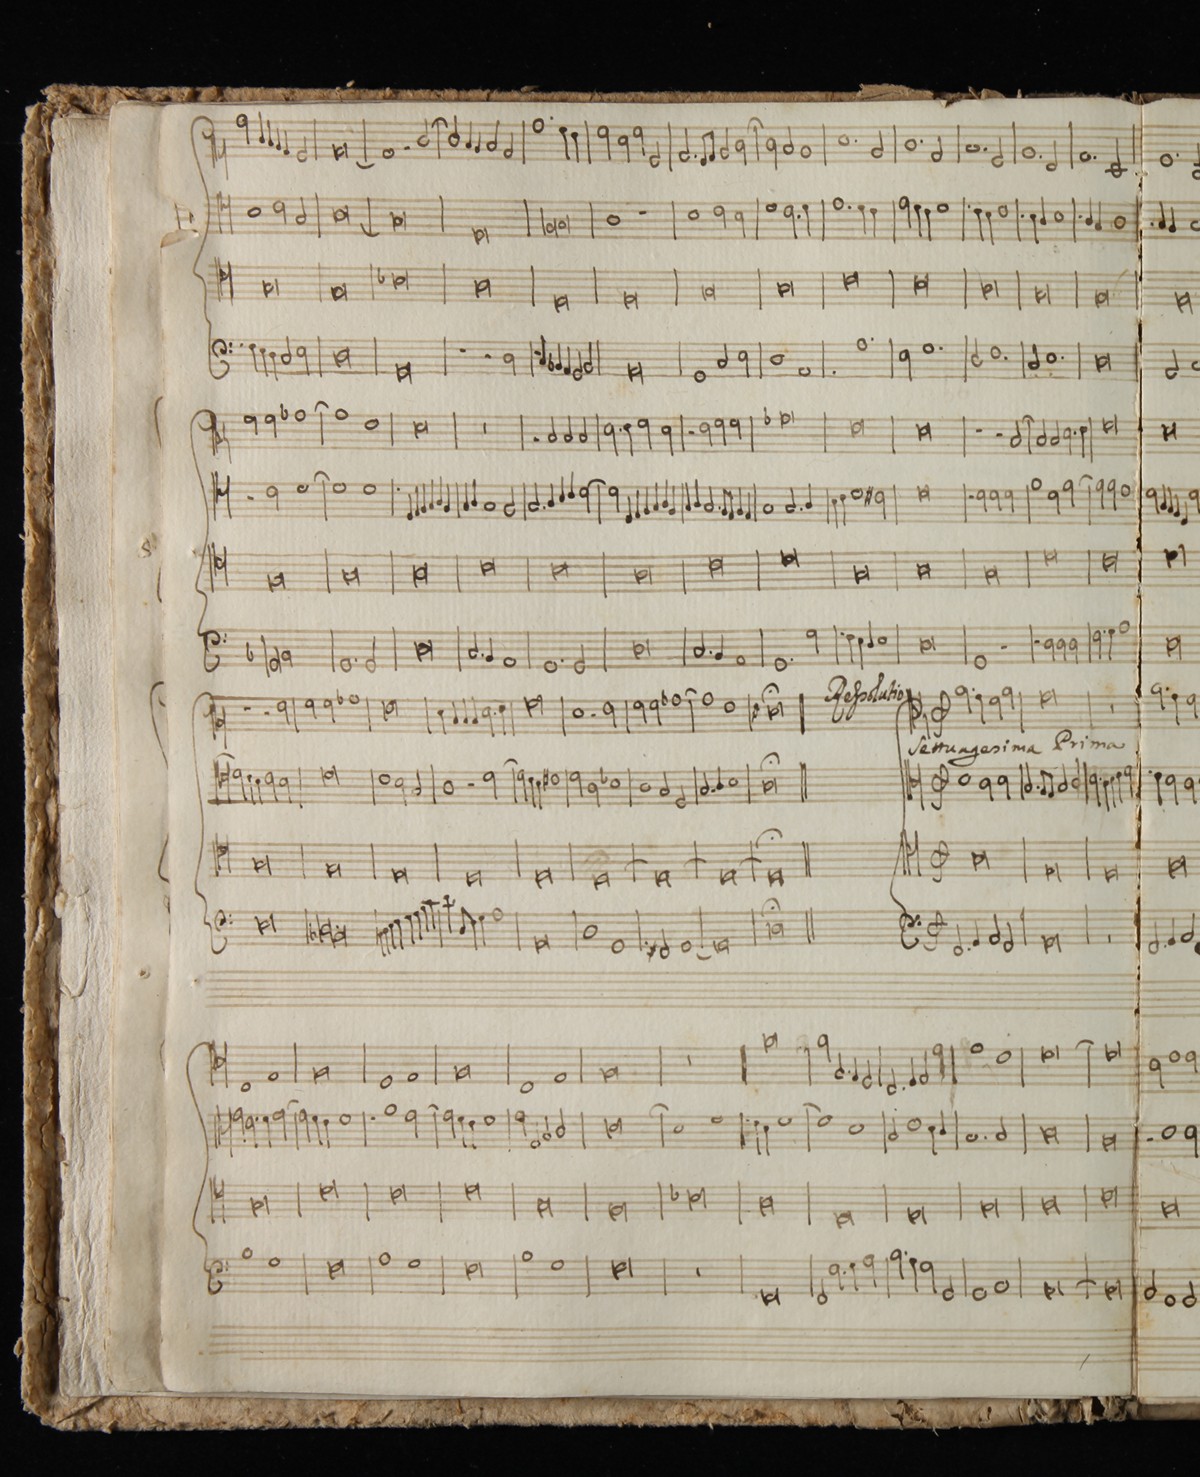 Ressolutio
Settuagesima Prima